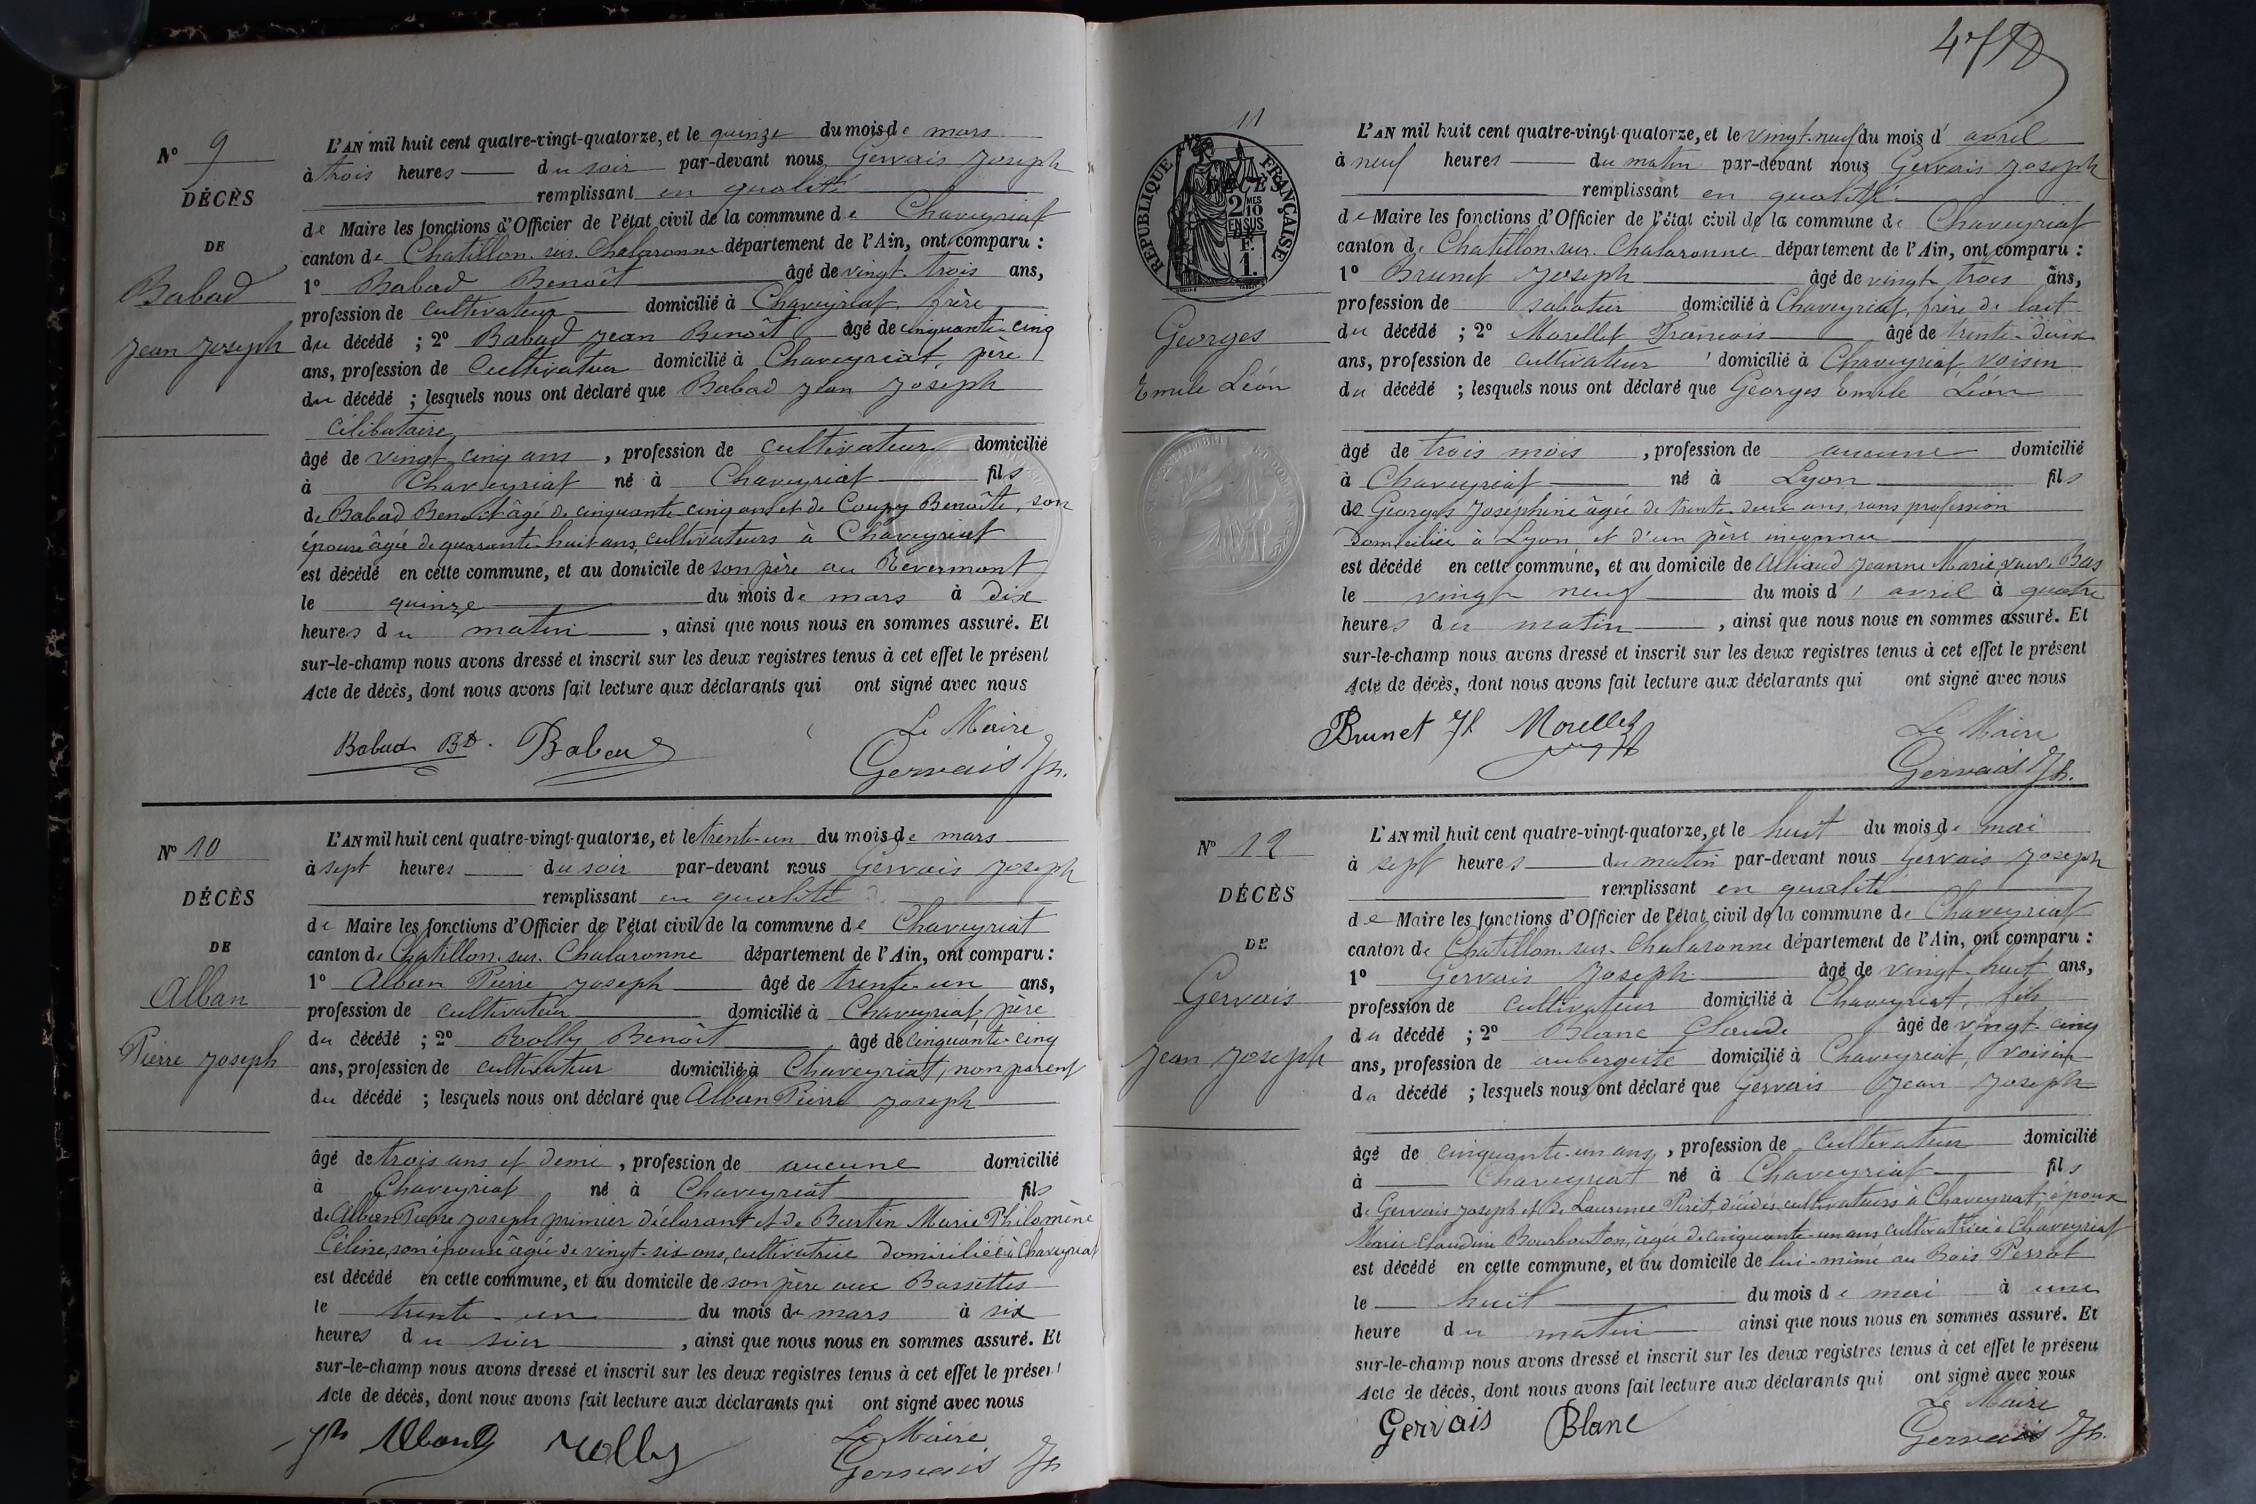 Nº 9
DÉCÈS
DE
Babad
Jean Joseph
L'AN mil huit cent quatre-vingt-quatorze, et le quinze du mois de mars
à trois heures du soir par-devant nous Gervais Joseph
remplissant en qualité
de Maire les fonctions d'Officier de l'état civil de la commune de Chaveyriat
canton de Chatillon-sur-Chalaronne département de l'Ain, ont comparu :
1º Babad Benoît âgé de vingt-trois ans,
profession de cultivateur domicilié à Chaveyriat, frère
du décédé ; 2º Babad Jean Benoît âgé de cinquante-cinq
ans, profession de Cultivateur domicilié à Chaveyriat, père
du décédé ; lesquels nous ont déclaré que Babad Jean Joseph
célibataire
âgé de vingt-cinq ans , profession de cultivateur domicilié
à Chaveyriat né à Chaveyriat fils
de Babad Benoit âgé de cinquante-cinq ans et de Benoîte, son
épouse âgée de quarante-huit ans, cultivateurs à Chaveyriat
est décédé en cette commune, et au domicile de son père au Revermont
le quinze du mois de mars à dix
heures du matin , ainsi que nous nous en sommes assuré. Et
sur-le-champ nous avons dressé et inscrit sur les deux registres tenus à cet effet le présent
Acte de décès, dont nous avons fait lecture aux déclarants qui ont signé avec nous
Le Maire
Babad Bt. Babad Gervais Jh.
Nº 10
DÉCÈS
DE
Alban
Pierre Joseph
L'AN mil huit cent quatre-vingt-quatorze, et le trente-un du mois de mars
à sept heures du soir par-devant nous Gervais Joseph
remplissant en qualité
de Maire les fonctions d'Officier de l'état civil de la commune de Chaveyriat
canton de Chatillon-sur-Chalaronne département de l'Ain, ont comparu :
1º Alban Pierre Joseph âgé de trente-un ans,
profession de cultivateur domicilié à Chaveyriat, père
du décédé ; 2º Rolly Benoît âgé de cinquante-cinq
ans, profession de cultivateur domicilié à Chaveyriat, non parent
du décédé ; lesquels nous ont déclaré que Alban Pierre Joseph
âgé de trois ans et demi , profession de aucune domicilié
à Chaveyriat né à Chaveyriat fils
de Alban Pierre Joseph premier déclarant et de Burtin Marie Philomène
Céline, son épouse âgée de vingt-six ans, cultivatrice domiciliée à Chaveyriat
est décédé en cette commune, et au domicile de son père aux Bassettes
le trente-un du mois de mars à six
heures du soir , ainsi que nous nous en sommes assuré. Et
sur-le-champ nous avons dressé et inscrit sur les deux registres tenus à cet effet le présent
Acte de décès, dont nous avons fait lecture aux déclarants qui ont signé avec nous
Le Maire
Jh Alban Rolly Gervais Jh
11
Nº
RÉPUBLIQUE FRANÇAISE
DÉCÈS
2/10 EN SUS
1 F.
Georges
Emile Léon
L'AN mil huit cent quatre-vingt-quatorze, et le vingt-neuf du mois d' avril
à neuf heures du matin par-devant nous Gervais Joseph
remplissant en qualité
de Maire les fonctions d'Officier de l'état civil de la commune de Chaveyriat
canton de Chatillon-sur-Chalaronne département de l'Ain, ont comparu :
1º Brunet Joseph âgé de vingt-trois ans,
profession de sabotier domicilié à Chaveyriat, frère de lait
du décédé ; 2º Morellet François âgé de trente-deux
ans, profession de cultivateur domicilié à Chaveyriat, voisin
du décédé ; lesquels nous ont déclaré que Georges Emile Léon
âgé de trois mois , profession de aucune domicilié
à Chaveyriat né à Lyon fils
de Georges Joséphine âgée de trente-deux ans, sans profession
domiciliée à Lyon et d'un père inconnu
est décédé en cette commune, et au domicile de Jeanne Marie, veuve Bas
le vingt-neuf du mois d' avril à quatre
heures du matin , ainsi que nous nous en sommes assuré. Et
sur-le-champ nous avons dressé et inscrit sur les deux registres tenus à cet effet le présent
Acte de décès, dont nous avons fait lecture aux déclarants qui ont signé avec nous
Le Maire
Brunet Jh Morellet Gervais Jh.
Nº 12
DÉCÈS
DE
Gervais
Jean Joseph
L'AN mil huit cent quatre-vingt-quatorze, et le huit du mois de mai
à sept heures du matin par-devant nous Gervais Joseph
remplissant en qualité
de Maire les fonctions d'Officier de l'état civil de la commune de Chaveyriat
canton de Chatillon-sur-Chalaronne département de l'Ain, ont comparu :
1º Gervais Joseph âgé de vingt-huit ans,
profession de cultivateur domicilié à Chaveyriat, fils
du décédé ; 2º Blanc Claude âgé de vingt-cinq
ans, profession de aubergiste domicilié à Chaveyriat, voisin
du décédé ; lesquels nous ont déclaré que Gervais Jean Joseph
âgé de cinquante-un ans , profession de cultivateur domicilié
à Chaveyriat né à Chaveyriat fils
de Gervais Joseph et de Laurence décédés cultivateurs à Chaveyriat, époux
Marie Claudine âgée de cinquante-un ans, cultivatrice à Chaveyriat
est décédé en cette commune, et au domicile de lui-même au Bois Perrat
le huit du mois de mai à une
heure du matin ainsi que nous nous en sommes assuré. Et
sur-le-champ nous avons dressé et inscrit sur les deux registres tenus à cet effet le présent
Acte de décès, dont nous avons fait lecture aux déclarants qui ont signé avec nous
Le Maire
Gervais Blanc Gervais Jh.